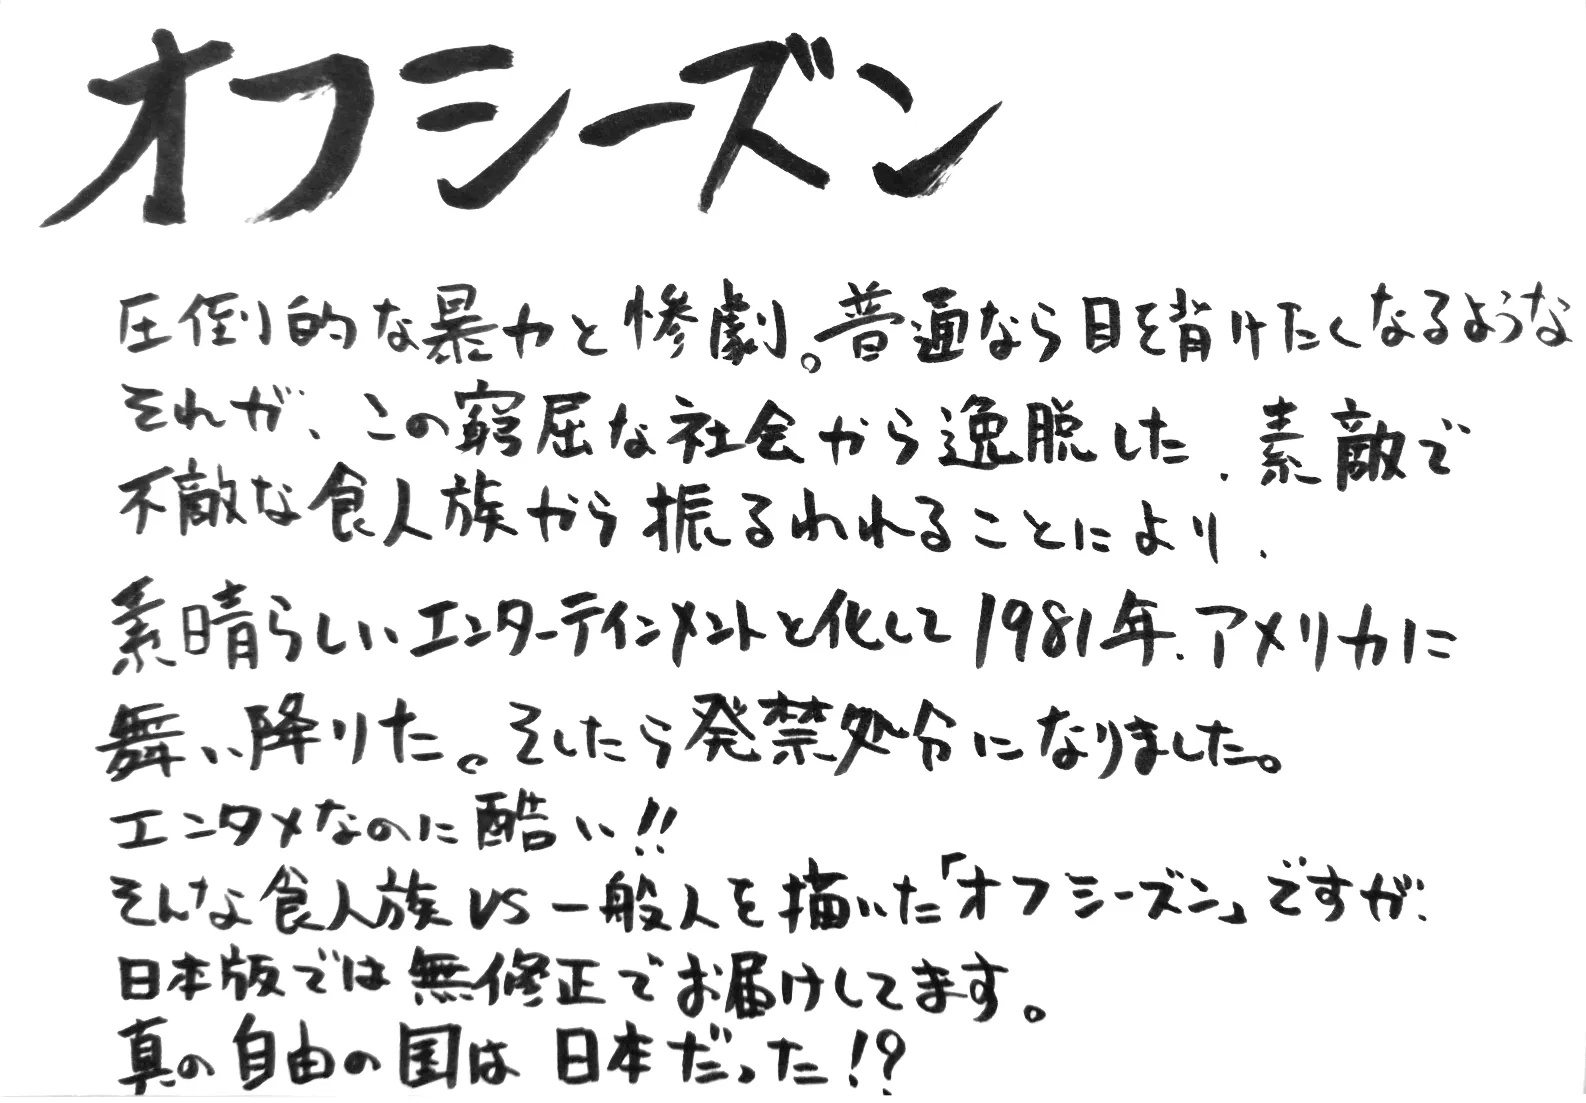 オフシーズン
圧倒的な暴力と惨劇。普通なら目を背けたくなるような
それが、この窮屈な社会から逸脱した、素敵で
不敵な食人族から振るわれることにより、
素晴らしいエンターテインメントと化して1981年、アメリカに
舞い降りた。そしたら発禁処分になりました。
エンタメなのに酷い!!
そんな食人族VS一般人を描いた「オフシーズン」ですが、
日本版では無修正でお届けしてます。
真の自由の国は日本だった!?